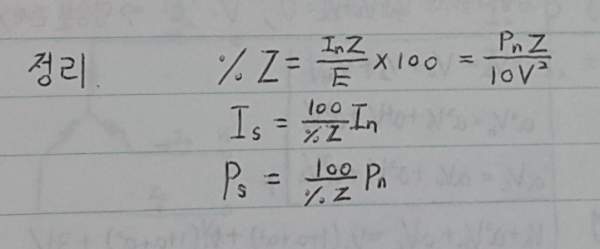 정리 % Z = InZ/E × 100 = PnZ/10V²
Is = 100/%Z In
Ps = 100/%Z Pn